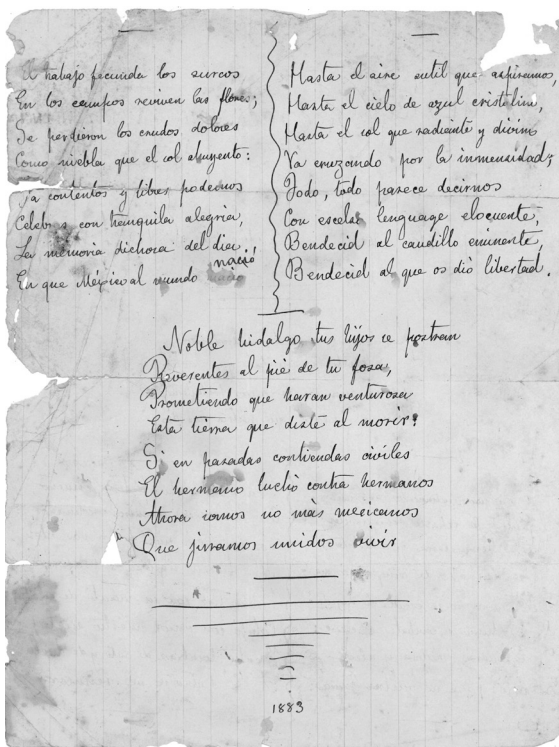 trabajo fecunda los surcos
En los campos reviven las flores;
Se perdieron los crudos dolores
Como niebla que el sol ahuyento:
Ya contentos y libres podemos
Celeb s con tranquila alegria,
La memoria dichosa del dia
En que México al mundo nació!
Hasta el aire sutil que aspiramos,
Hasta el cielo de azul cristalino,
Hasta el sol que radiante y divino
Va cruzando por la inmensidad;
Todo, todo parece decirnos
Con escelso lenguage elocuente,
Bendecid al caudillo eminente,
Bendecid al que os dió libertad.
Noble hidalgo tus hijos se postran
Reverentes al pié de tu fosa,
Prometiendo que haran venturosa
Esta tierra que disté al morir!
Si en pasadas contiendas civiles
El hermano luchó contra hermanos
Ahora somos no más mexicanos
Que juramos unidos vivir
1883